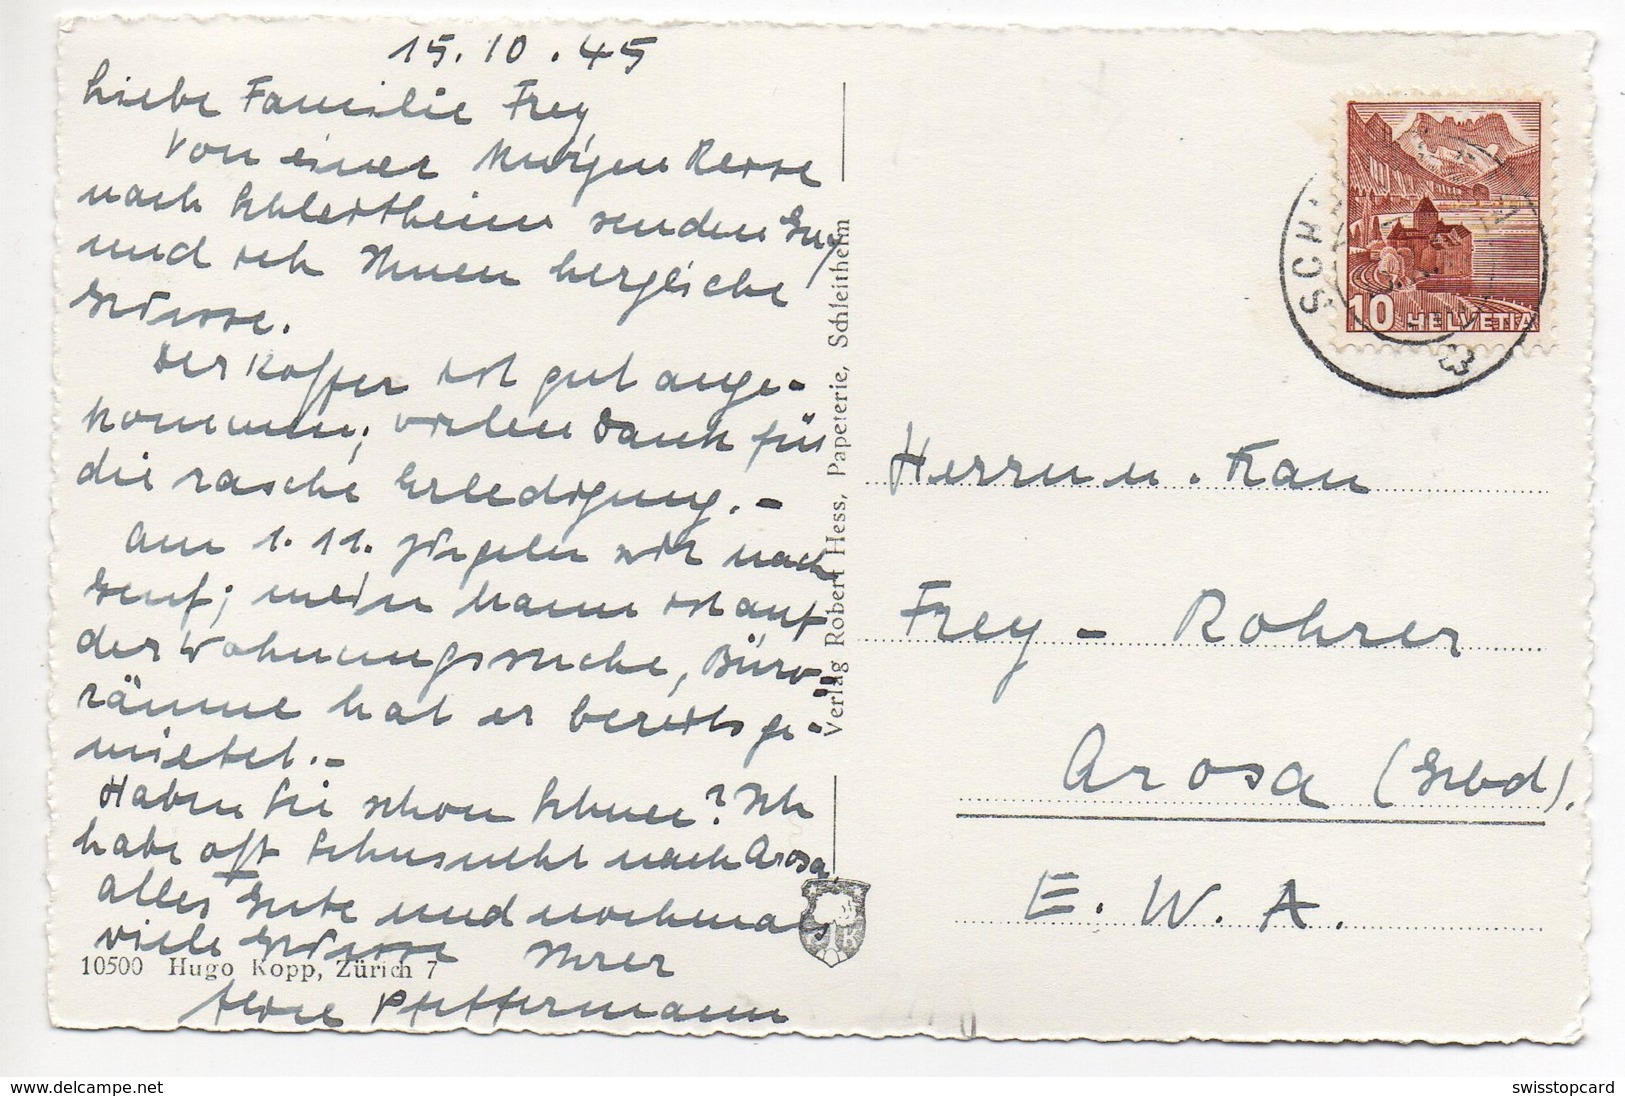 15.10.45
Liebe Familie Frey,
Von einer kurzen Reise
nach Schleitheim senden Guy
und ich Ihnen herzliche
Grüsse.
Der Koffer ist gut ange-
kommen; vielen Dank für
die rasche Erledigung.-
Am 1.11. zügeln wir nach
Genf; mein Mann ist auf
der Wohnungssuche, Büro-
räume hat er bereits ge-
mietet.-
Haben Sie schon Schnee? Ich
habe oft Sehnsucht nach Arosa,
alles Gute und nochmals
viele Grüsse Ihrer
Pfeffermann
10500 Hugo Kopp, Zürich 7
Verlag Robert Hess, Papeterie, Schleitheim
SCH
10 HELVETIA
Herrn u. Frau
Frey - Rohrer
Arosa (Grbd).
E. W. A.
www.delcampe.net
swisstopcard